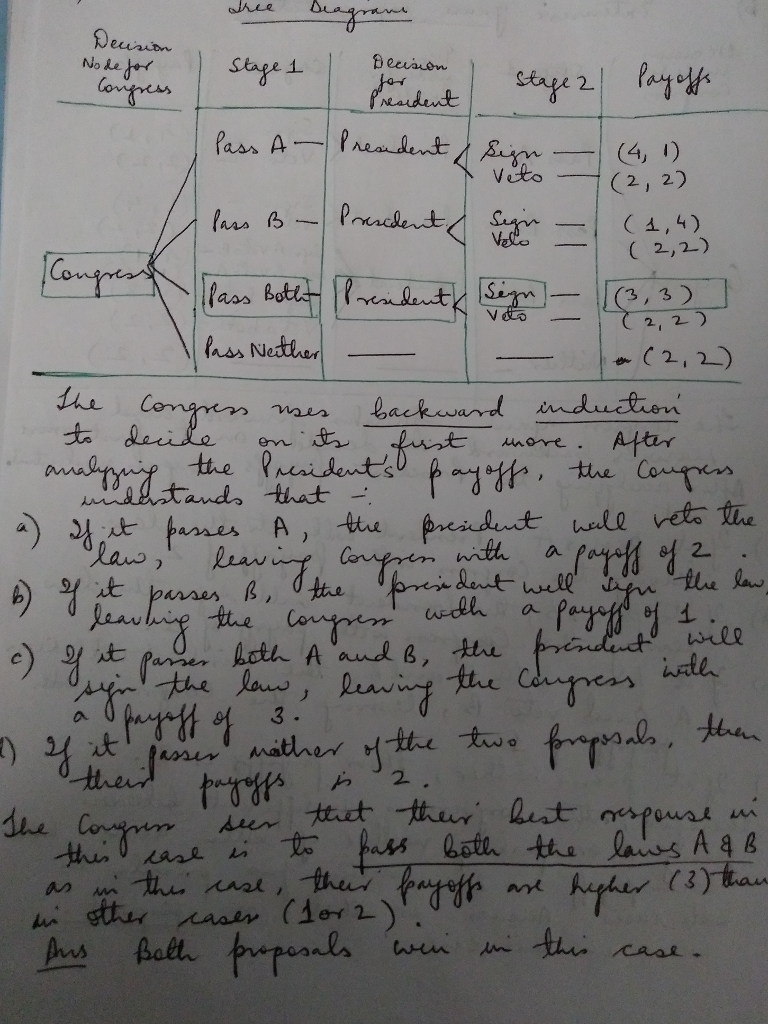 Tree Diagram
Decision Node for Congress | Stage 1 | Decision for President | Stage 2 | Payoffs
Pass A — President < Sign — (4, 1)
Veto — (2, 2)
Pass B — President < Sign — (1, 4)
Veto — (2, 2)
Congress
Pass Both — President < Sign — (3, 3)
Veto — (2, 2)
Pass Neither — — (2, 2)
The Congress uses backward induction
to decide on its first move. After
analyzing the President's payoffs, the Congress
understands that -:
a) If it passes A, the president will veto the
law, leaving Congress with a payoff of 2.
b) If it passes B, the president will sign the law,
leaving the Congress with a payoff of 1.
c) If it passes both A and B, the president will
sign the law, leaving the Congress with
a payoff of 3.
d) If it passes neither of the two proposals, then
their payoffs is 2.
The Congress sees that their best response in
this case is to pass both the laws A & B
as in this case, their payoffs are higher (3) than
in other cases (1 or 2).
Ans Both proposals win in this case.